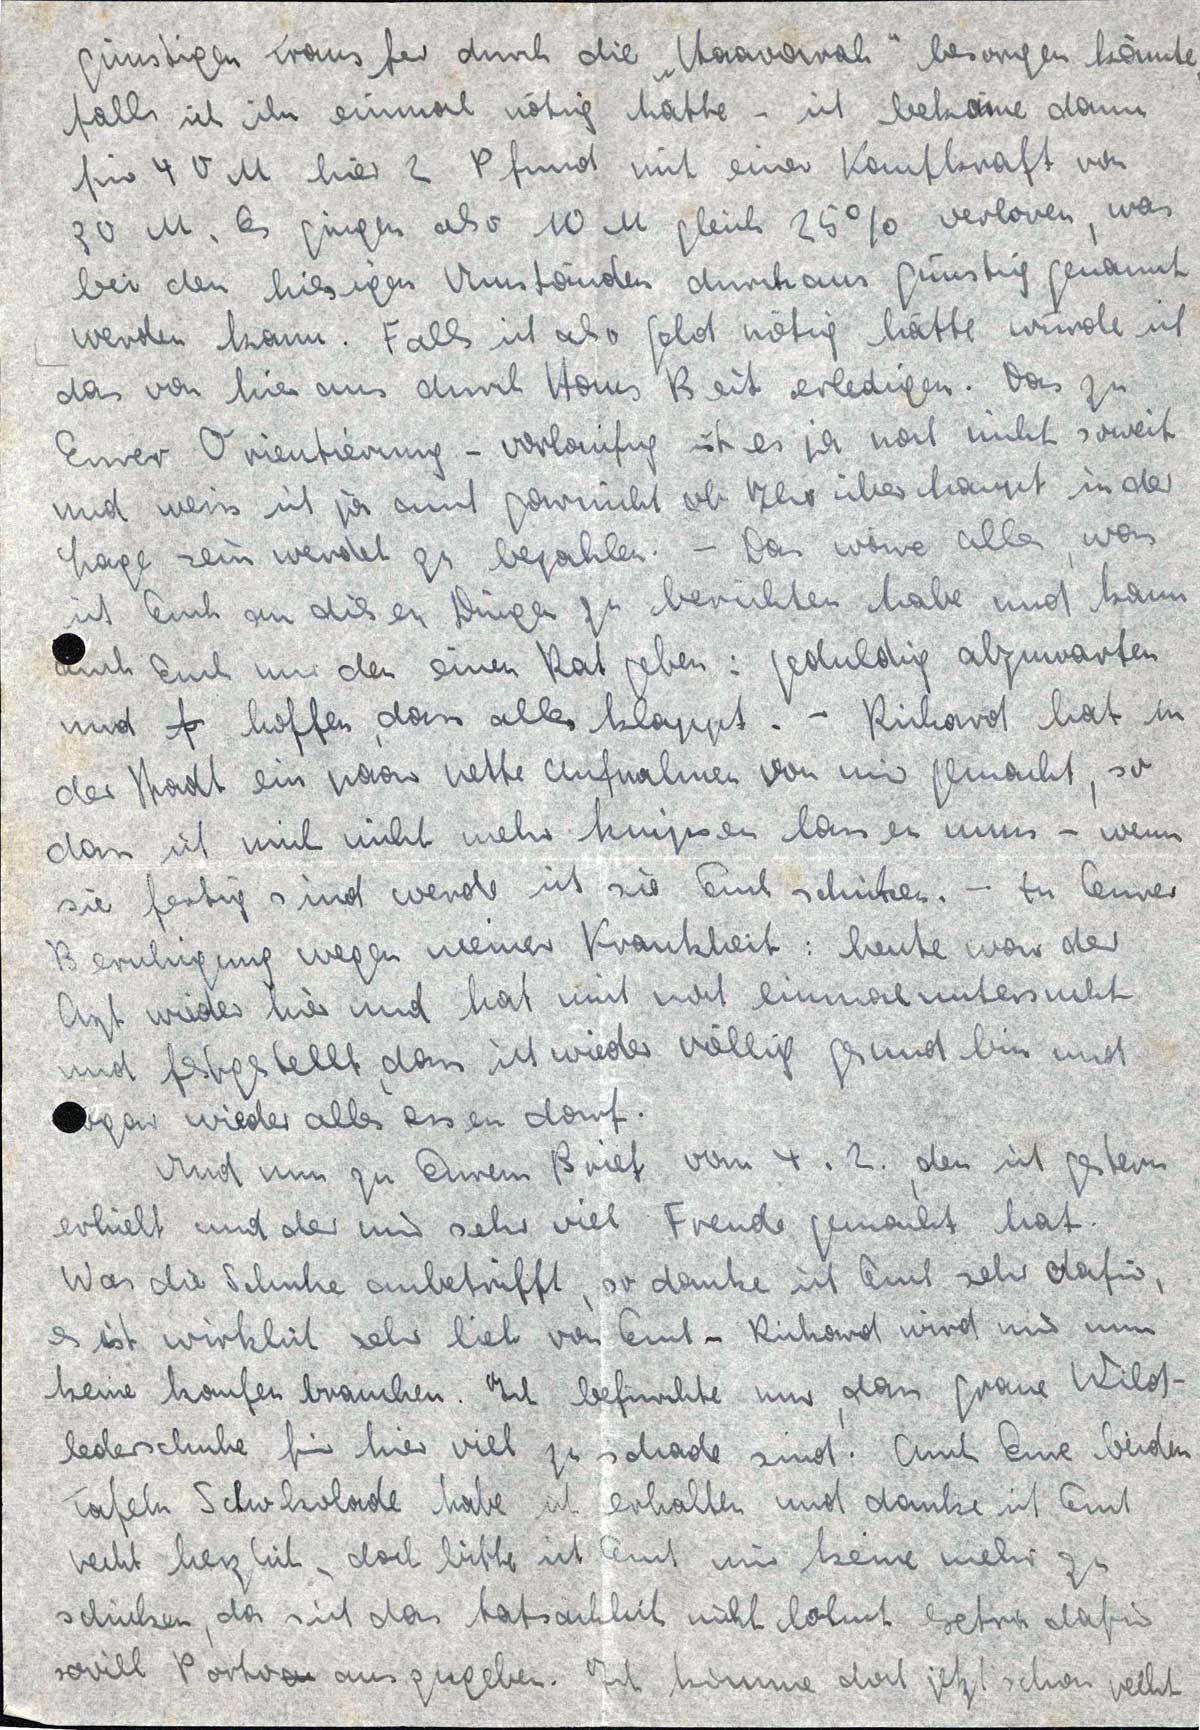 günstigen Transfer durch die „Haavarah“ besorgen könnte
falls ich ihn einmal nötig hätte – ich bekäme dann
für 40 M hier 2 Pfund mit einer Kaufkraft von
30 M. Es gingen also 10 M gleich 25% verloren, was
bei den hiesigen Umständen durchaus günstig genannt
werden kann. Falls ich also Geld nötig hätte würde ich
das von hier aus durch Hans Beit erledigen. Das zu
Eurer Orientierung – vorläufig ist es ja noch nicht soweit
und weiss ich ja auch garnicht ob Ihr überhaupt in der
Lage sein werdet zu bezahlen. – Das wäre alles, was
ich Euch an diesen Dingen zu berichten habe und kann
auch Euch nur den einen Rat geben: geduldig abzuwarten
und hoffen, dass alles klappt. – Richard hat in
der Stadt ein paar nette Aufnahmen von mir gemacht, so
dass ich mich nicht mehr knipsen lassen muss – wenn
sie fertig sind werde ich sie Euch schicken. – Zu Eurer
Beruhigung wegen meiner Krankheit: heute war der
Arzt wieder hier und hat mich noch einmal untersucht
und festgestellt, dass ich wieder völlig gesund bin und
sogar wieder alles essen darf.
Und nun zu Eurem Brief vom 4.2., den ich gestern
erhielt und der mir sehr viel Freude gemacht hat.
Was die Schuhe anbetrifft, so danke ich Euch sehr dafür,
es ist wirklich sehr lieb von Euch – Richard wird mir nun
keine kaufen brauchen. Ich befürchte nur, dass graue Wild-
lederschuhe für hier viel zu schade sind. Auch Eure beiden
Tafeln Schokolade habe ich erhalten und danke ich Euch
recht herzlich, doch bitte ich Euch mir keine mehr zu
schicken, da sich das tatsächlich nicht lohnt extra dafür
soviel Porto auszugeben. Ich komme doch jetzt schon recht